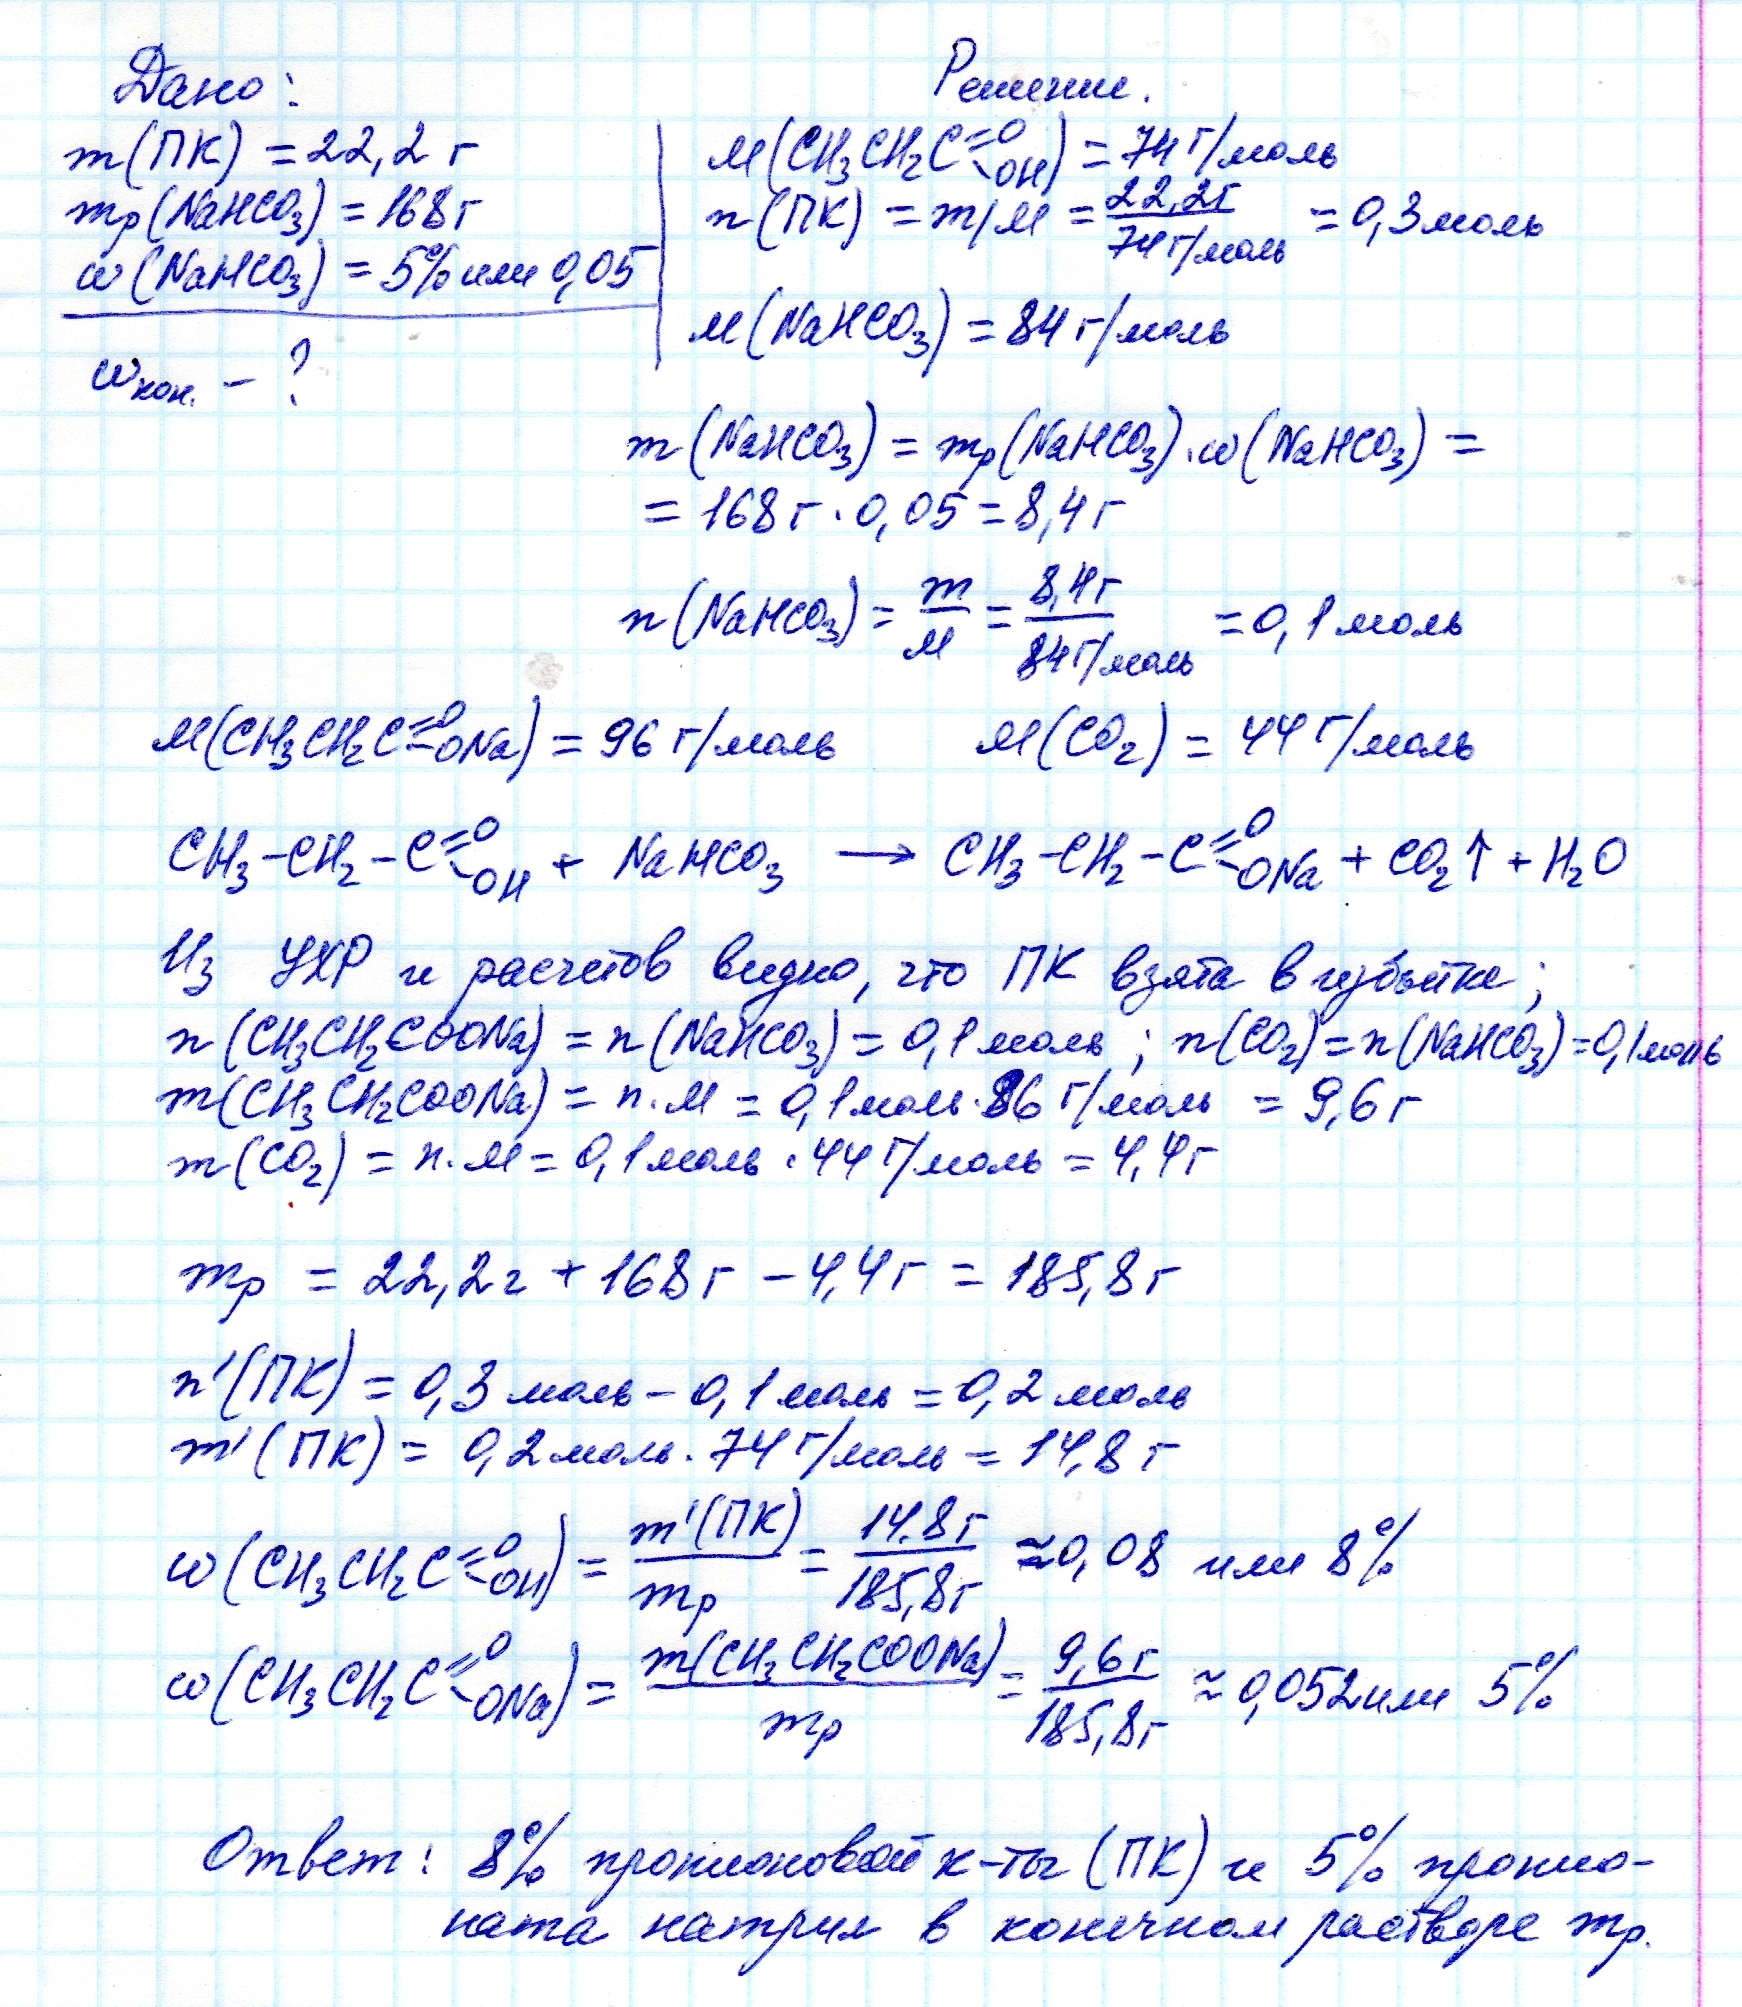 Дано:
Решение.
m(ПК) = 22,2 г
mр(NaHCO3) = 168 г
ω(NaHCO3) = 5% или 0,05
ωкон. – ?
M(CH3CH2C=O-OH) = 74 г/моль
n(ПК) = m/M = 22,2г/74г/моль = 0,3 моль
M(NaHCO3) = 84 г/моль
m(NaHCO3) = mр(NaHCO3)·ω(NaHCO3) =
= 168 г · 0,05 = 8,4 г
n(NaHCO3) = m/M = 8,4г/84г/моль = 0,1 моль
M(CH3CH2C=O-ONa) = 96 г/моль M(CO2) = 44 г/моль
CH3-CH2-C=O-OH + NaHCO3 → CH3-CH2-C=O-ONa + CO2↑ + H2O
Из УХР и расчетов видно, что ПК взята в избытке;
n(CH3CH2COONa) = n(NaHCO3) = 0,1 моль; n(CO2) = n(NaHCO3) = 0,1 моль
m(CH3CH2COONa) = n·M = 0,1 моль·86 г/моль = 9,6 г
m(CO2) = n·M = 0,1 моль·44 г/моль = 4,4 г
mр = 22,2 г + 168 г – 4,4 г = 185,8 г
n'(ПК) = 0,3 моль – 0,1 моль = 0,2 моль
m'(ПК) = 0,2 моль·74 г/моль = 14,8 г
ω(CH3CH2C=O-OH) = m'(ПК)/mр = 14,8г/185,8г ≈ 0,08 или 8%
ω(CH3CH2C=O-ONa) = m(CH3CH2COONa)/mр = 9,6г/185,8г ≈ 0,052 или 5%
Ответ: 8% пропионовой к-ты (ПК) и 5% пропио-
ната натрия в конечном растворе mр.